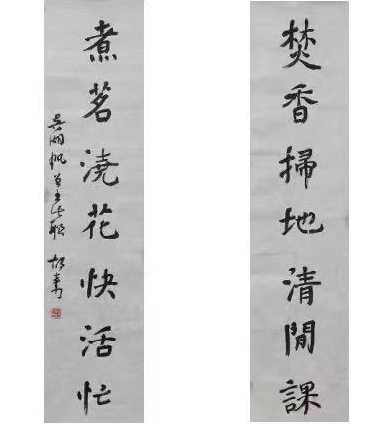 焚香掃地清閒課
煮茗澆花快活忙
吴湖帆